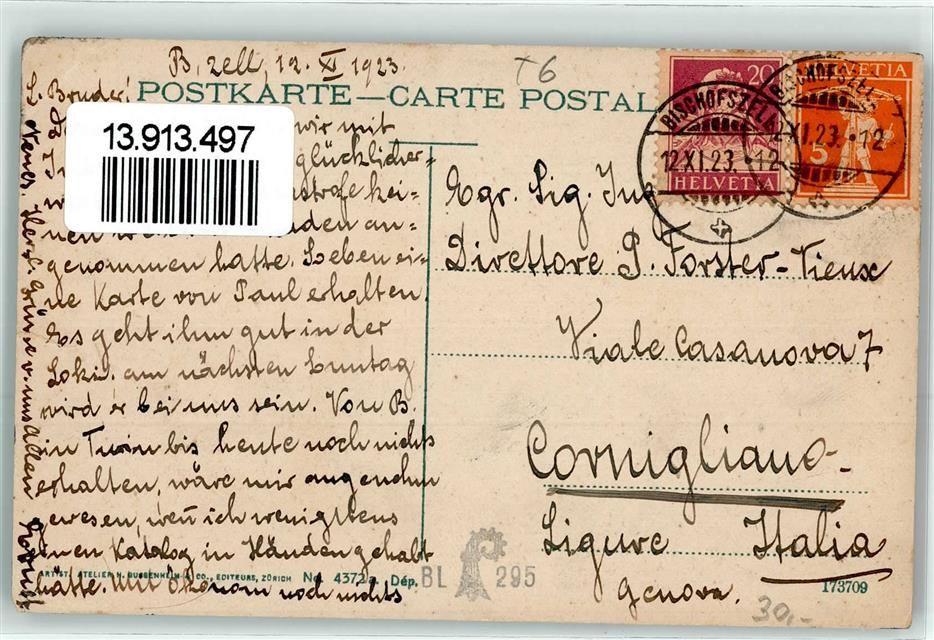 B. zell, 12. XI 1923.
T6
POSTKARTE — CARTE POSTAL
13.913.497
L. Bruder!
wir mit
glücklicher=
strafe kei=
nen den an=
genommen hatte. Soeben ei=
ne Karte von Paul erhalten.
Es geht ihm gut in der
am nächsten Sonntag
wird er bei uns sein. Von B.
in Turin bis heute noch nichts
erhalten, wäre mir angenehm
gewesen, wen̄ ich wenigstens
einen Katalog in Händen gehabt
hätte. Mit Ökonom noch nichts
v. uns Allen
20
HELVETIA
BISCHOFSZELL
12.XI.23.-12
HELVETIA
5
BISCHOFSZELL
12.XI.23.-12
Egr. Sig. Ing.
Direttore P. Forster-Vieux
Viale Casanova 7
Cornigliano-
Ligure Italia
Genova.
ARTIST. ATELIER H. GUGGENHEIM & CO., EDITEURS, ZÜRICH No. 4372 Dép.
BL 295
173709
30,-